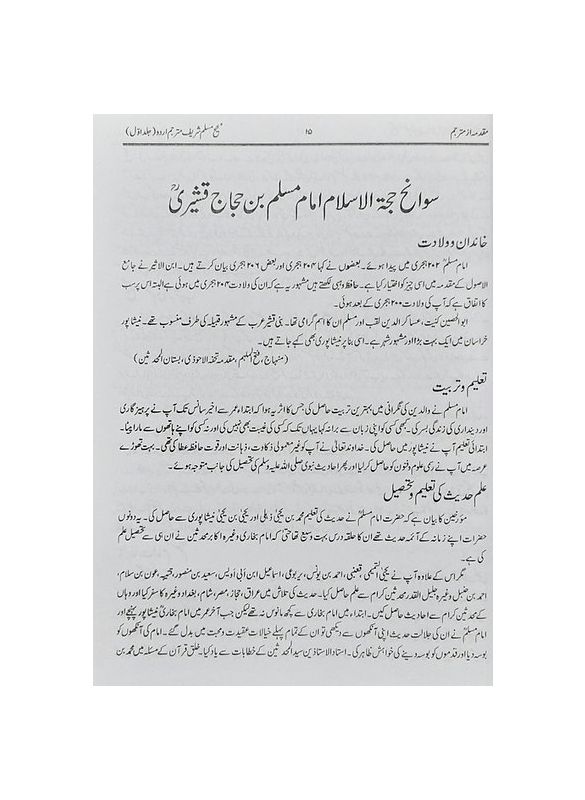 مقدمہ از مترجم ۱۵ صحیح مسلم شریف مترجم اردو (جلد اوّل)
سوانح حجۃ الاسلام امام مسلم بن حجاج قشیریؒ
خاندان و ولادت
امام مسلمؒ ۲۰۲ ہجری میں پیدا ہوئے۔ بعضوں نے کہا ۲۰۴ ہجری اور بعض ۲۰۶ ہجری بیان کرتے ہیں۔ ابن الاثیر نے جامع
الاصول کے مقدمہ میں اسی چیز کو اختیار کیا ہے۔ حافظ ذہبی لکھتے ہیں مشہور یہ ہے کہ ان کی ولادت ۲۰۴ ہجری میں ہوئی ہے البتہ اس پر سب
کا اتفاق ہے کہ آپ کی ولادت ۲۰۰ ہجری کے بعد ہوئی۔
ابو الحسین کنیت، عساکر الدین لقب اور مسلم ان کا اسم گرامی تھا۔ بنی قشیر عرب کے مشہور قبیلہ کی طرف منسوب تھے۔ نیشاپور
خراسان میں ایک بہت بڑا اور مشہور شہر ہے۔ اسی بنا پر نیشاپوری بھی کہے جاتے ہیں۔
(منہاج، فتح الملہم، مقدمہ تحفۃ الاحوذی، بستان المحدثین)
تعلیم و تربیت
امام مسلم نے والدین کی نگرانی میں بہترین تربیت حاصل کی جس کا اثر یہ ہوا کہ ابتداء عمر سے اخیر سانس تک آپ نے پرہیزگاری
اور دینداری کی زندگی بسر کی۔ کبھی کسی کو اپنی زبان سے برا نہ کہا یہاں تک کہ کسی کی غیبت بھی نہیں کی اور نہ کسی کو اپنے ہاتھوں سے مارا پیٹا۔
ابتدائی تعلیم آپ نے نیشاپور میں حاصل کی۔ خداوند تعالیٰ نے آپ کو غیر معمولی ذکاوت، ذہانت اور قوت حافظہ عطا کی تھی۔ بہت تھوڑے
عرصہ میں آپ نے رسمی علوم و فنون کو حاصل کر لیا اور پھر احادیث نبوی صلی اللہ علیہ وسلم کی تحصیل کی جانب متوجہ ہوئے۔
علم حدیث کی تعلیم و تحصیل
مؤرخین کا بیان ہے کہ حضرت امام مسلمؒ نے حدیث کی تعلیم محمد بن یحییٰ ذہلی اور یحییٰ بن یحییٰ نیشاپوری سے حاصل کی۔ یہ دونوں
حضرات اپنے زمانہ کے آئمہ حدیث تھے ان کا حلقہ درس بہت وسیع تھا حتی کہ امام بخاری وغیرہ اکابر محدثین نے ان ہی سے تحصیل علم
کی ہے۔
مگر اس کے علاوہ آپ نے یحییٰ التمیمی، قعنبی، احمد بن یونس، یربوعی، اسماعیل ابن ابی اُویس، سعید بن منصور، قتیبہ، عون بن سلام،
احمد بن حنبل وغیرہ جلیل القدر محدثین کرام سے علم حاصل کیا۔ حدیث کی تلاش میں عراق، حجاز، مصر، شام، بغداد وغیرہ کا سفر کیا اور وہاں
کے محدثین کرام سے احادیث حاصل کیں۔ ابتداء میں امام بخاری سے کچھ مانوس نہ تھے لیکن جب آخر عمر میں امام بخاریؒ نیشاپور پہنچے اور
امام مسلمؒ نے ان کی جلالت حدیث اپنی آنکھوں سے دیکھی تو ان کے تمام پہلے خیالات عقیدت و محبت میں بدل گئے۔ امام کی آنکھوں کو
بوسہ دیا اور قدموں کو بوسہ دینے کی خواہش ظاہر کی۔ استاذ الاستاذین سید المحدثین کے خطابات سے یاد کیا۔ خلق قرآن کے مسئلہ میں محمد بن